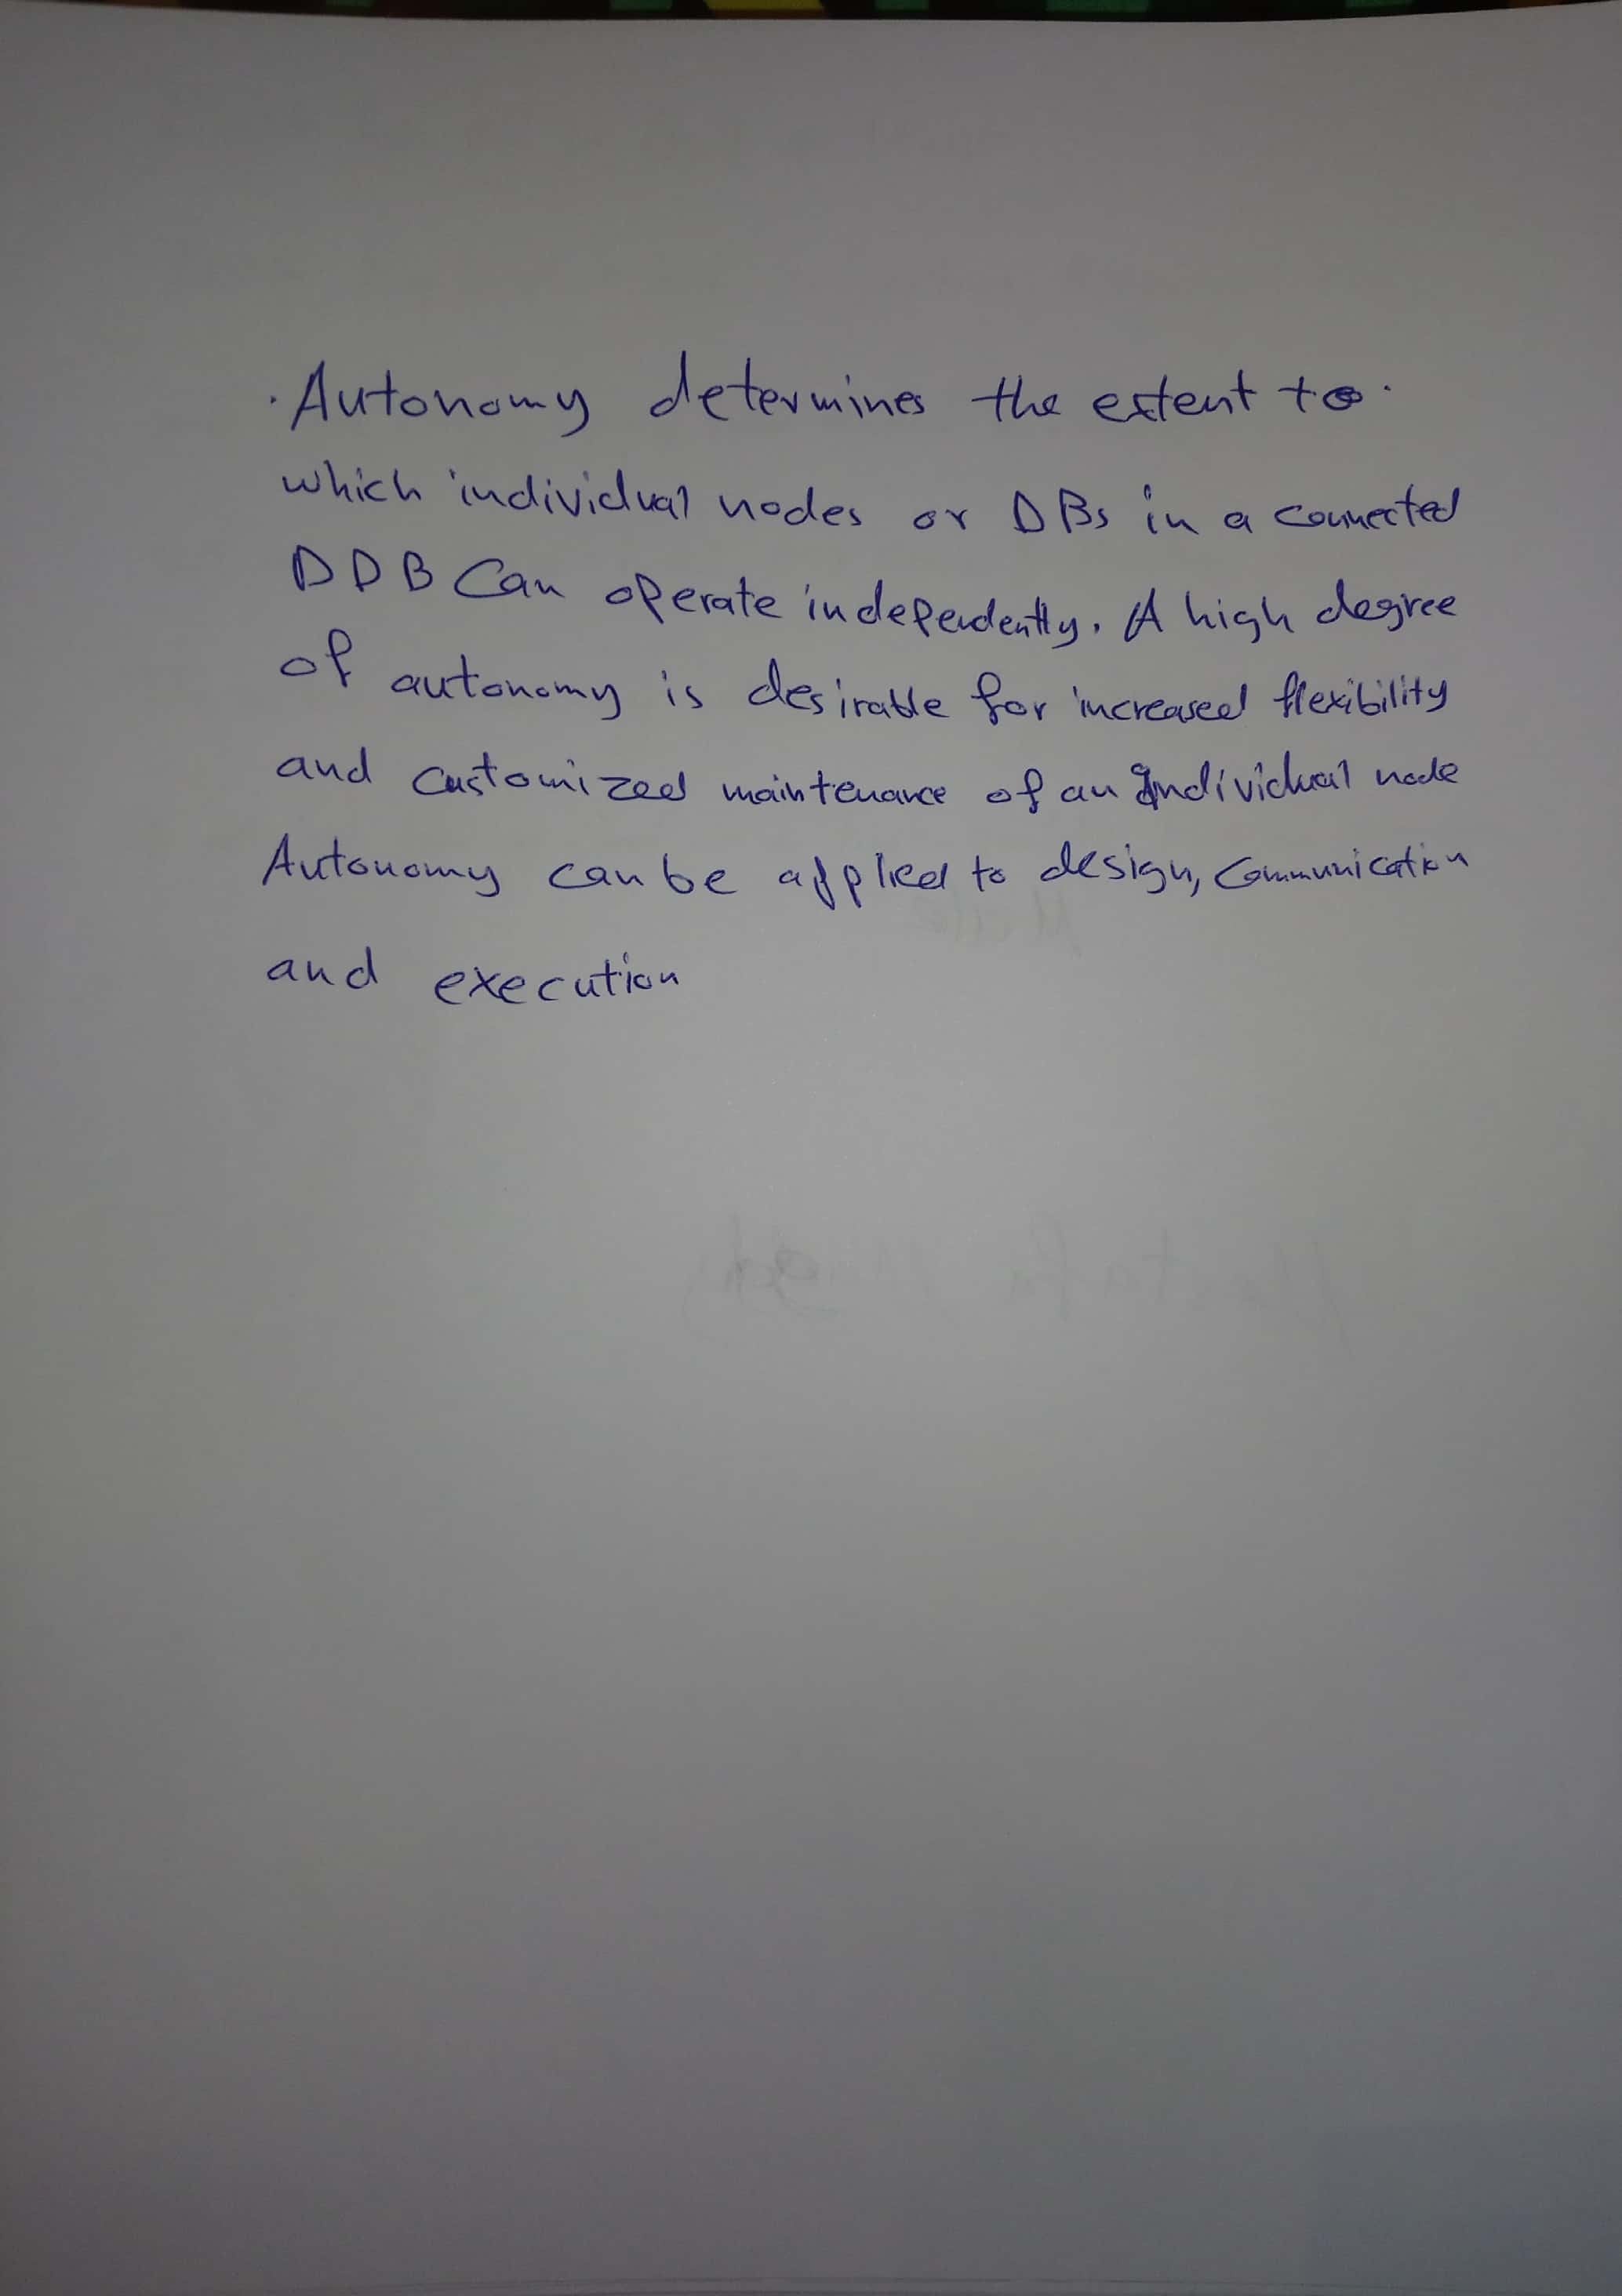 . Autonomy determines the extent to.
which individual nodes or DBs in a connected
DDB Can operate independently. A high degree
of autonomy is desirable for increased flexibility
and customized maintenance of an individual node
Autonomy can be applied to design, Communication
and execution